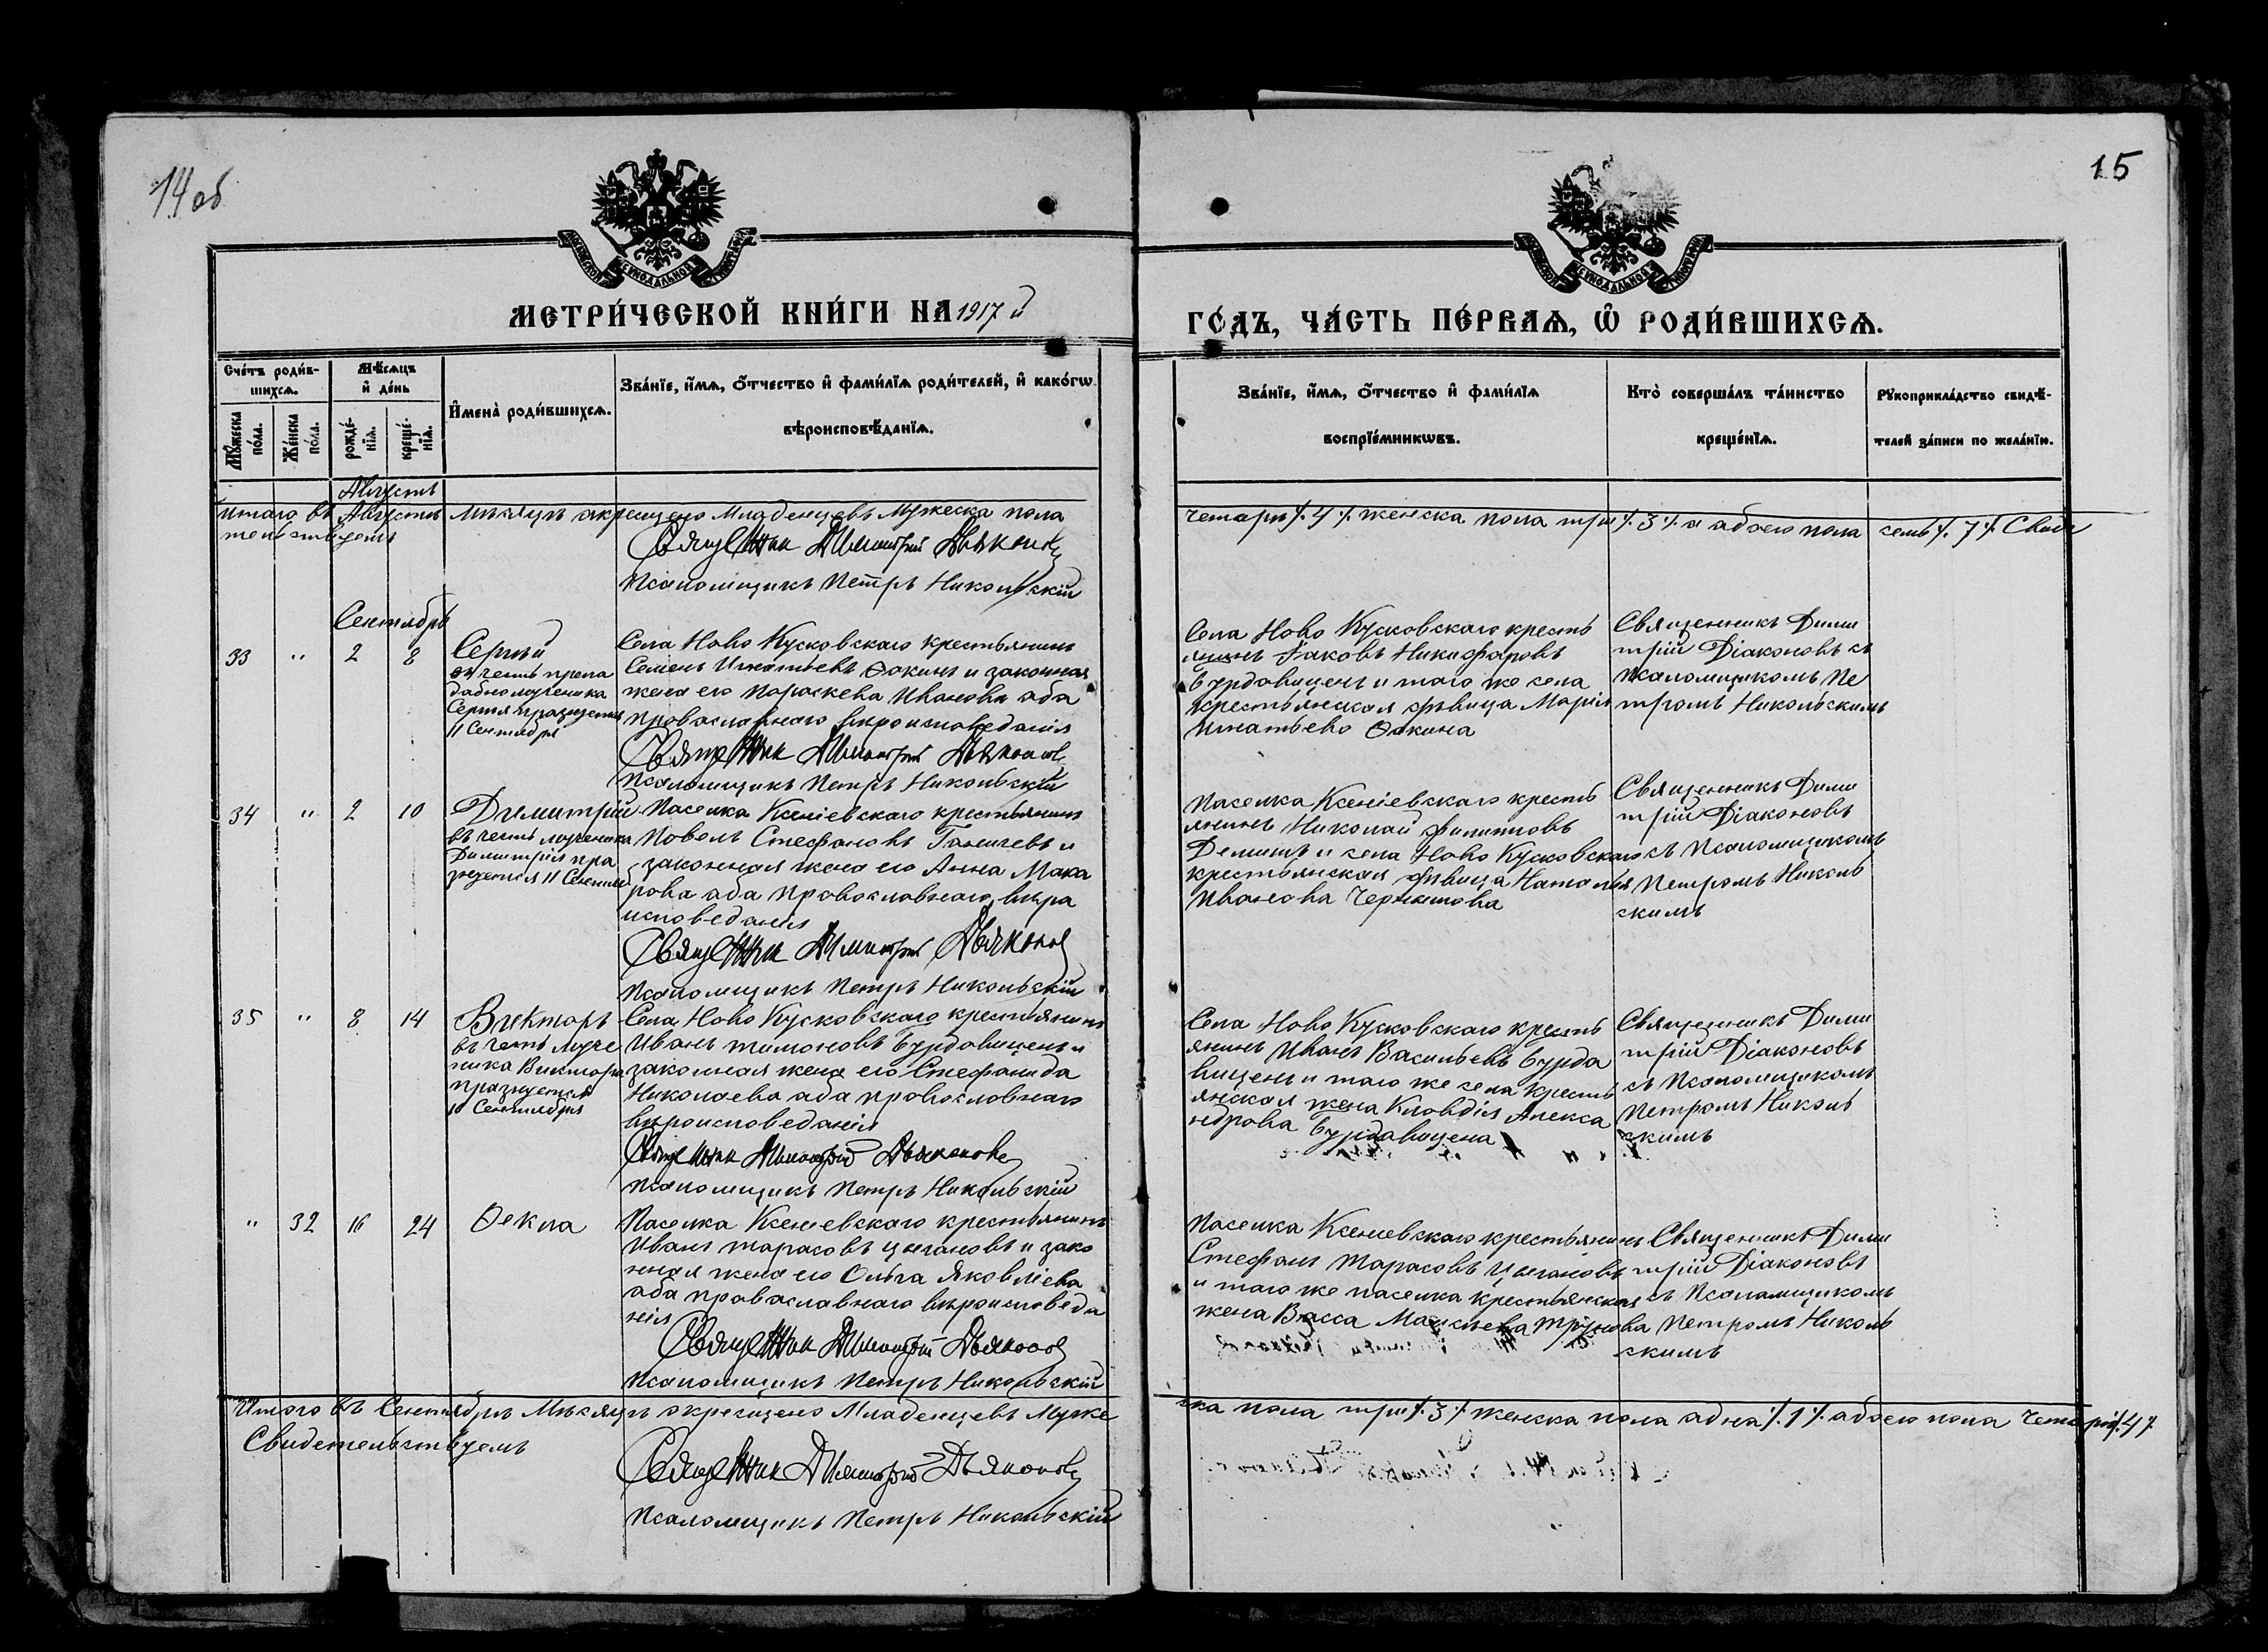 14 об
15
МЕТРИ́ЧЕСКОЙ КНИ́ГИ НА 1917 й
ГО́ДЪ, ЧА́СТЬ ПЕ́РВАѦ, Ѡ҆ РОДИ́ВШИХСѦ.
Сче́тъ роди́в-
шихсѧ.
Мꙋ́жеска по́ла.
Же́нска по́ла.
Мѣ́сѧцъ
и҆ де́нь
рожде́-
нїѧ.
креще́-
нїѧ.
И҆мена̀ роди́вшихсѧ.
Зва́нїе, и҆́мѧ, ѻ҆́тчество и҆ фами́лїѧ роди́телей, и҆ како́гѡ
вѣроисповѣ́данїѧ.
Зва́нїе, и҆́мѧ, ѻ҆́тчество и҆ фами́лїѧ
воспрїе́мникѡвъ.
Кто̀ соверша́лъ та́инство
креще́нїѧ.
Рꙋкоприкла́дство свидѣ́-
телей за́писи по жела́нїю.
Августъ
итого въ Августѣ мѣсяцѣ окрещено Младенцевъ Мужеска пола
четыри ⁒ 4 ⁒ женска пола три ⁒ 3 ⁒ а абоего пола семь ⁒ 7 ⁒ Свиде
тельствуемъ
Священник Димитрий Дьяконов
Псаломщикъ Петръ Никольскій
Сентябрь
33 " 2 8
Сергѣй
въ честь препа
добномученика
Сергія празнуется
11 Сентября
Села Ново Кусковскаго крестьянинъ
Семенъ Игнатьевъ Ѳокинъ и законная
жена его Параскева Иванова аба
провославнаго вѣроисповеданія
Священник Димитрий Дьяконов
Псаломщикъ Петръ Никольскій
Села Ново Кусковскаго кресть
янинъ Іаковъ Никифаровъ
Бурдавиценъ и того же села
крестьянская дѣвица Марія
Игнатьева Ѳокина
Священникъ Дими
трій Діаконовъ съ
Псаломщикомъ Пе
тромъ Никольскимъ
34 " 2 10
Димитрій
въ честь мученика
Димитрія пра
знуется 11 Сентяб
Паселка Ксеніевскаго крестьянинъ
Повелъ Стефановъ Ганичевъ и
законная жена его Анна Мака
рова аба провославнаго вѣра
исповеданія
Священник Димитрий Дьяконов
Псаломщикъ Петръ Никольскій
Паселка Ксеніевскаго кресть
янинъ Николай Филипповъ
Деминъ и села Ново Кусковскаго
крестьянская дѣвица Наталья
Иванова
Священникъ Дими
трій Діаконовъ
съ Псаломщикомъ
Петромъ Николь
скимъ
35 " 8 14
Викторъ
въ честь муче
ника Виктора
празнуется
10 Сентября
Села Ново Кусковскаго крестьянинъ
Иванъ тимоновъ Бурдовиценъ и
законная жена его Стефанида
Николаева аба провословнаго
вѣроисповеданія
Священник Димитрий Дьяконов
Псаломщикъ Петръ Никольскій
Села Ново Кусковскаго кресть
янинъ Иванъ Васильевъ Бурда
виценъ и того же села кресть
янская жена Кловдія Алекса
ндрова Бурдавицена
Священникъ Дими
трій Діаконовъ
съ Псаломщикомъ
Петромъ Николь
скимъ
" 32 16 24
Ѳекла
Паселка Ксеніевскаго крестьянинъ
Иванъ тарасовъ цыгановъ и зако
нная жена его Ольга Яковліева
аба праваславнаго вѣроисповеда
нія
Священник Димитрий Дьяконов
Псаломщикъ Петръ Никольскій
Паселка Ксеніевскаго крестьянинъ
Стефанъ Тарасовъ Цыгановъ
и того же паселка крестьянская
жена Васса
Священникъ Дими
трій Діаконовъ
съ Псаламщикомъ
Петромъ Николь
скимъ
Итого въ Сентябрѣ Мѣсяцѣ окрещено Младенцевъ Муже
ска пола три ⁒ 3 ⁒ женска пола адна ⁒ 1 ⁒ абоего пола четыри ⁒ 4 ⁒
Свидетельствуемъ
Священник Димитрий Дьяконов
Псаломщикъ Петръ Никольскій